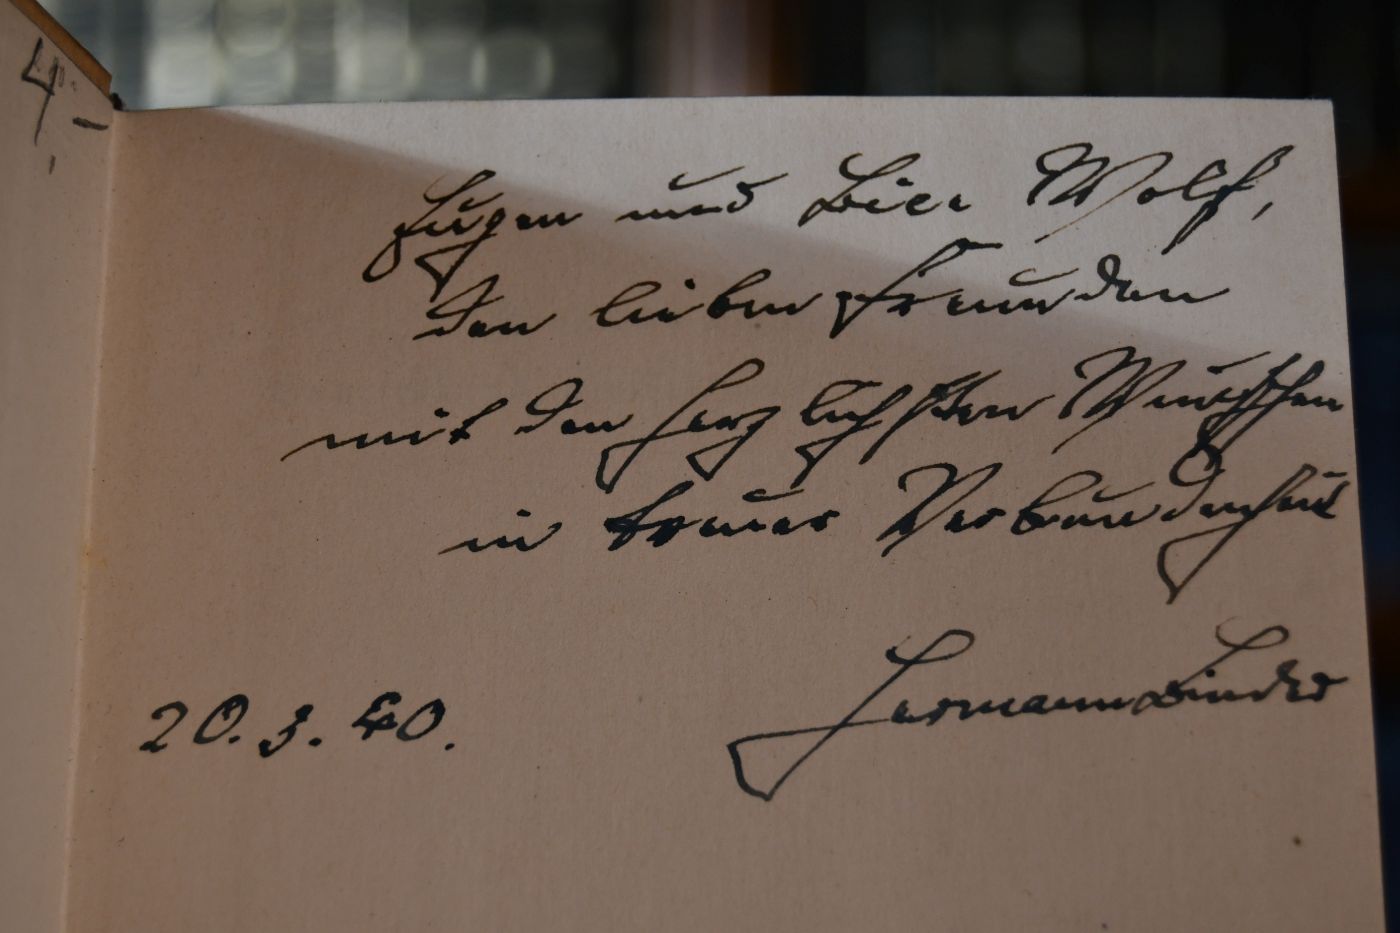 4.-
Eugen und Wolf,
den lieben Freunden
mit den herzlichsten Wünschen
in treuer Verbundenheit
Hermann Binder
20.3.40.